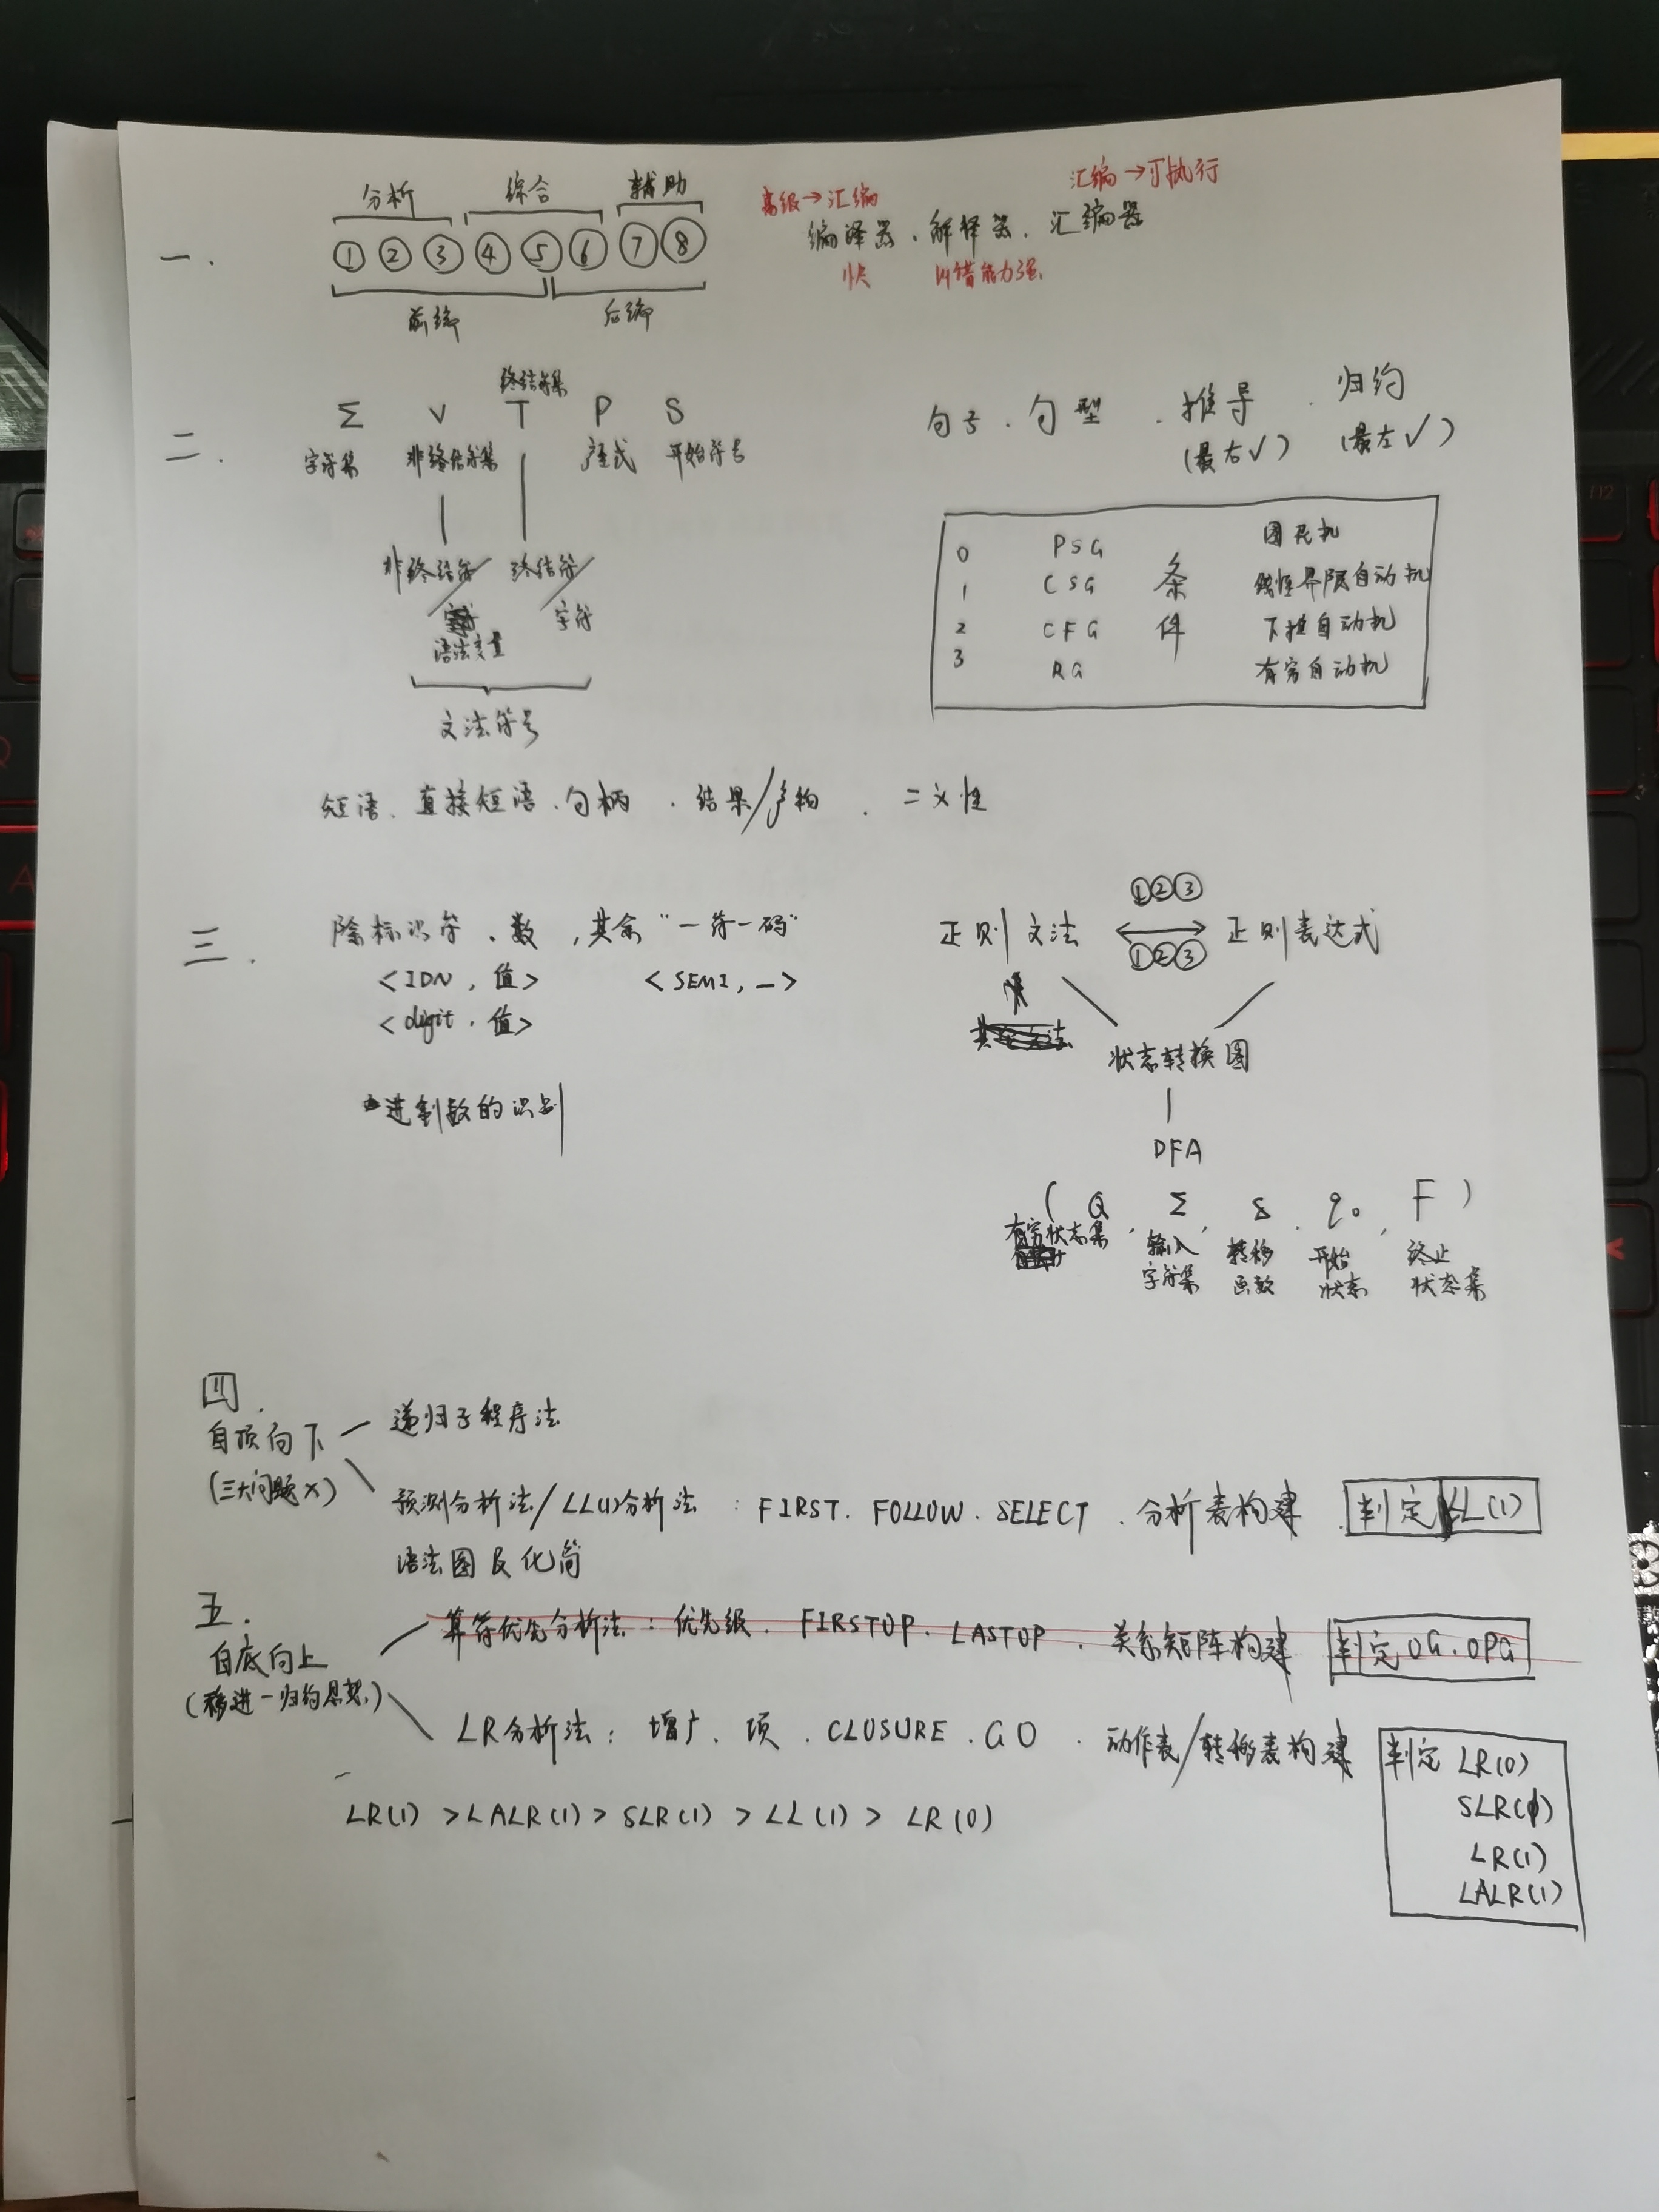 一.
分析 综合 辅助
① ② ③ ④ ⑤ ⑥ ⑦ ⑧
前端 后端
高级→汇编 汇编→可执行
编译器、解释器、汇编器
快 纠错能力强
二.
终结符集
Σ V T P S
字符集 非终结符集 产生式 开始符号
非终结符/语法变量 终结符/字符
文法符号
句子、句型、推导、归约
(最右√) (最左√)
0 PSG 图灵机
1 CSG 线性界限自动机
条件
2 CFG 下推自动机
3 RG 有穷自动机
短语、直接短语、句柄、结果/产物、二义性
三.
除标识符、数,其余"一符一码"
<IDN,值> <SEMI,—>
<digit,值>
进制数的识别
①②③
正则文法 ⟷ 正则表达式
①②③
状态转换图
DFA
(Q, Σ, δ, q₀, F)
有穷状态集 输入字符集 转移函数 开始状态 终止状态集
四.
自顶向下
(三大问题×)
递归子程序法
预测分析法/LL(1)分析法:FIRST、FOLLOW、SELECT、分析表构建 判定LL(1)
语法图及化简
五.
自底向上
(移进-归约思想)
算符优先分析法:优先级、FIRSTOP、LASTOP、关系矩阵构建 判定OG、OPG
LR分析法:增广、项、CLOSURE、GO、动作表/转移表构建
判定 LR(0)
SLR(1)
LR(1)
LALR(1)
LR(1)>LALR(1)>SLR(1)>LL(1)>LR(0)